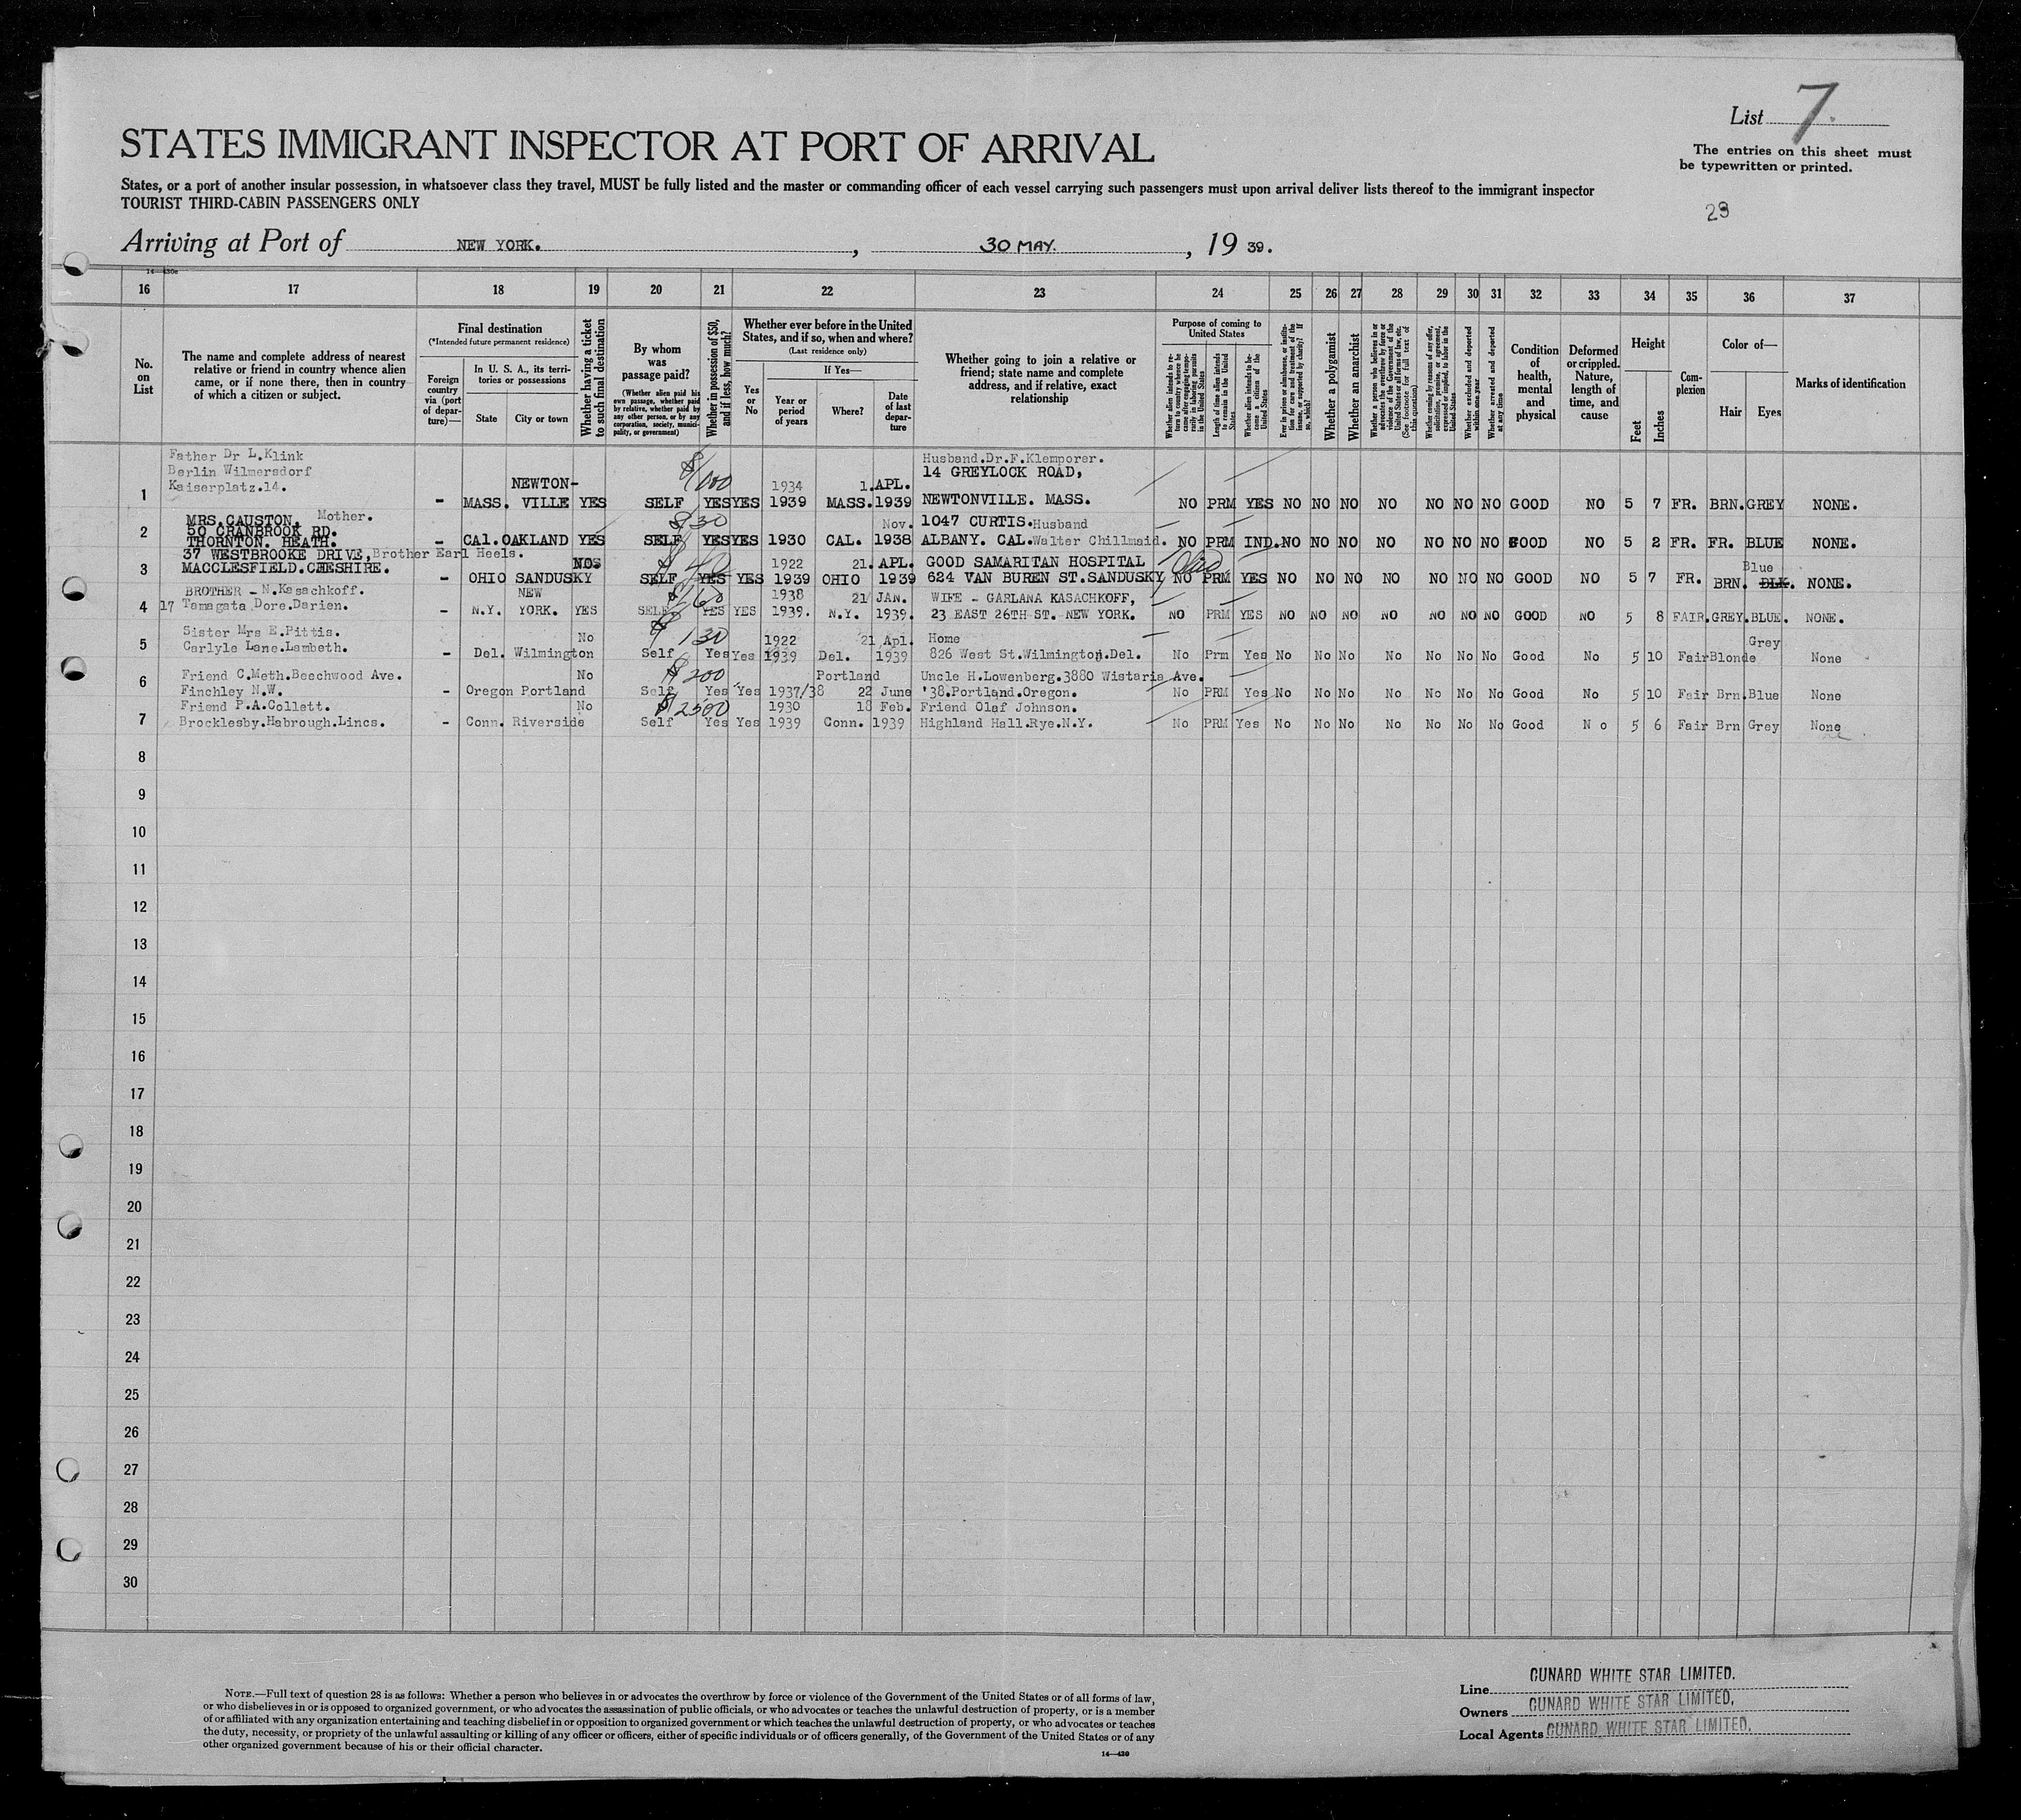 List 7.
STATES IMMIGRANT INSPECTOR AT PORT OF ARRIVAL
The entries on this sheet must
be typewritten or printed.
States, or a port of another insular possession, in whatsoever class they travel, MUST be fully listed and the master or commanding officer of each vessel carrying such passengers must upon arrival deliver lists thereof to the immigrant inspector
TOURIST THIRD-CABIN PASSENGERS ONLY
29
Arriving at Port of NEW YORK. , 30 MAY. , 19 39.
14—430e
16 17 18 19 20 21 22 23 24 25 26 27 28 29 30 31 32 33 34 35 36 37
No. on List
The name and complete address of nearest relative or friend in country whence alien came, or if none there, then in country of which a citizen or subject.
Final destination
(*Intended future permanent residence)
Foreign country via (port of departure)—
In U. S. A., its territories or possessions
State
City or town
Whether having a ticket to such final destination
By whom was passage paid?
(Whether alien paid his own passage, whether paid by relative, whether paid by any other person, or by any corporation, society, municipality, or government)
Whether in possession of $50, and if less, how much?
Whether ever before in the United States, and if so, when and where?
(Last residence only)
Yes or No
If Yes—
Year or period of years
Where?
Date of last departure
Whether going to join a relative or friend; state name and complete address, and if relative, exact relationship
Purpose of coming to United States
Whether alien intends to return to country whence he came after engaging temporarily in laboring pursuits in the United States
Length of time alien intends to remain in the United States
Whether alien intends to become a citizen of the United States
Ever in prison or almshouse, or institution for care and treatment of the insane, or supported by charity? If so, which?
Whether a polygamist
Whether an anarchist
Whether a person who believes in or advocates the overthrow by force or violence of the Government of the United States or all forms of law, etc. (See footnote for full text of this question)
Whether coming by reason of any offer, solicitation, promise, or agreement, expressed or implied, to labor in the United States
Whether excluded and deported within one year
Whether arrested and deported at any time
Condition of health, mental and physical
Deformed or crippled. Nature, length of time, and cause
Height
Feet
Inches
Complexion
Color of—
Hair
Eyes
Marks of identification
Father Dr L.Klink Husband.Dr.F.Klemporer.
Berlin Wilmersdorf 14 GREYLOCK ROAD,
Kaiserplatz.14. NEWTON- $1000 1934 1.APL.
1 – MASS. VILLE YES SELF YES YES 1939 MASS. 1939 NEWTONVILLE. MASS. NO PRM YES NO NO NO NO NO NO NO GOOD NO 5 7 FR. BRN. GREY NONE.
MRS.CAUSTON. Mother. $30 Nov. 1047 CURTIS.Husband
2 50 CRANBROOK RD.
THORNTON. HEATH. – CAl. OAKLAND YES SELF YES YES 1930 CAL. 1938 ALBANY. CAL.Walter Chillmaid. NO PRM IND. NO NO NO NO NO NO NO GOOD NO 5 2 FR. FR. BLUE NONE.
37 WESTBROOKE DRIVE,Brother Earl Heels.
3 MACCLESFIELD.CHESHIRE. NO $40 1922 21. APL. GOOD SAMARITAN HOSPITAL Blue
– OHIO SANDUSKY SELF YES YES 1939 OHIO 1939 624 VAN BUREN ST.SANDUSKY NO PRM YES NO NO NO NO NO NO NO GOOD NO 5 7 FR. BRN. BLK. NONE.
BROTHER – N.Kasachkoff. NEW $60 1938 21 JAN. WIFE – GARLANA KASACHKOFF,
4 17 Tamagata Dore.Darien. – N.Y. YORK. YES SELF YES YES 1939. N.Y. 1939. 23 EAST 26TH ST. NEW YORK. NO PRM YES NO NO NO NO NO NO NO GOOD NO 5 8 FAIR. GREY. BLUE. NONE.
Sister Mrs E.Pittis. No $130 1922 21 Apl. Home Grey
5 Carlyle Lane.Lambeth. – Del. Wilmington Self Yes Yes 1939 Del. 1939 826 West St.Wilmington.Del. No Prm Yes No No No No No No No Good No 5 10 Fair Blonde None
Friend C.Meth.Beechwood Ave. No $200 Portland Uncle H.Lowenberg.3880 Wistaria Ave.
6 Finchley N.W. – Oregon Portland Self Yes Yes 1937/38 22 June '38.Portland.Oregon. No PRM Yes No No No No No No No Good No 5 10 Fair Brn. Blue None
Friend P.A.Collett. No $2500 1930 18 Feb. Friend Olaf Johnson.
7 Brocklesby.Habrough.Lincs. – Conn. Riverside Self Yes Yes 1939 Conn. 1939 Highland Hall.Rye.N.Y. No PRM Yes No No No No No No No Good N o 5 6 Fair Brn Grey None
8
9
10
11
12
13
14
15
16
17
18
19
20
21
22
23
24
25
26
27
28
29
30
NOTE.—Full text of question 28 is as follows: Whether a person who believes in or advocates the overthrow by force or violence of the Government of the United States or of all forms of law,
or who disbelieves in or is opposed to organized government, or who advocates the assassination of public officials, or who advocates or teaches the unlawful destruction of property, or is a member
of or affiliated with any organization entertaining and teaching disbelief in or opposition to organized government or which teaches the unlawful destruction of property, or who advocates or teaches
the duty, necessity, or propriety of the unlawful assaulting or killing of any officer or officers, either of specific individuals or of officers generally, of the Government of the United States or of any
other organized government because of his or their official character.
14—430
Line CUNARD WHITE STAR LIMITED.
Owners CUNARD WHITE STAR LIMITED,
Local Agents CUNARD WHITE STAR LIMITED,